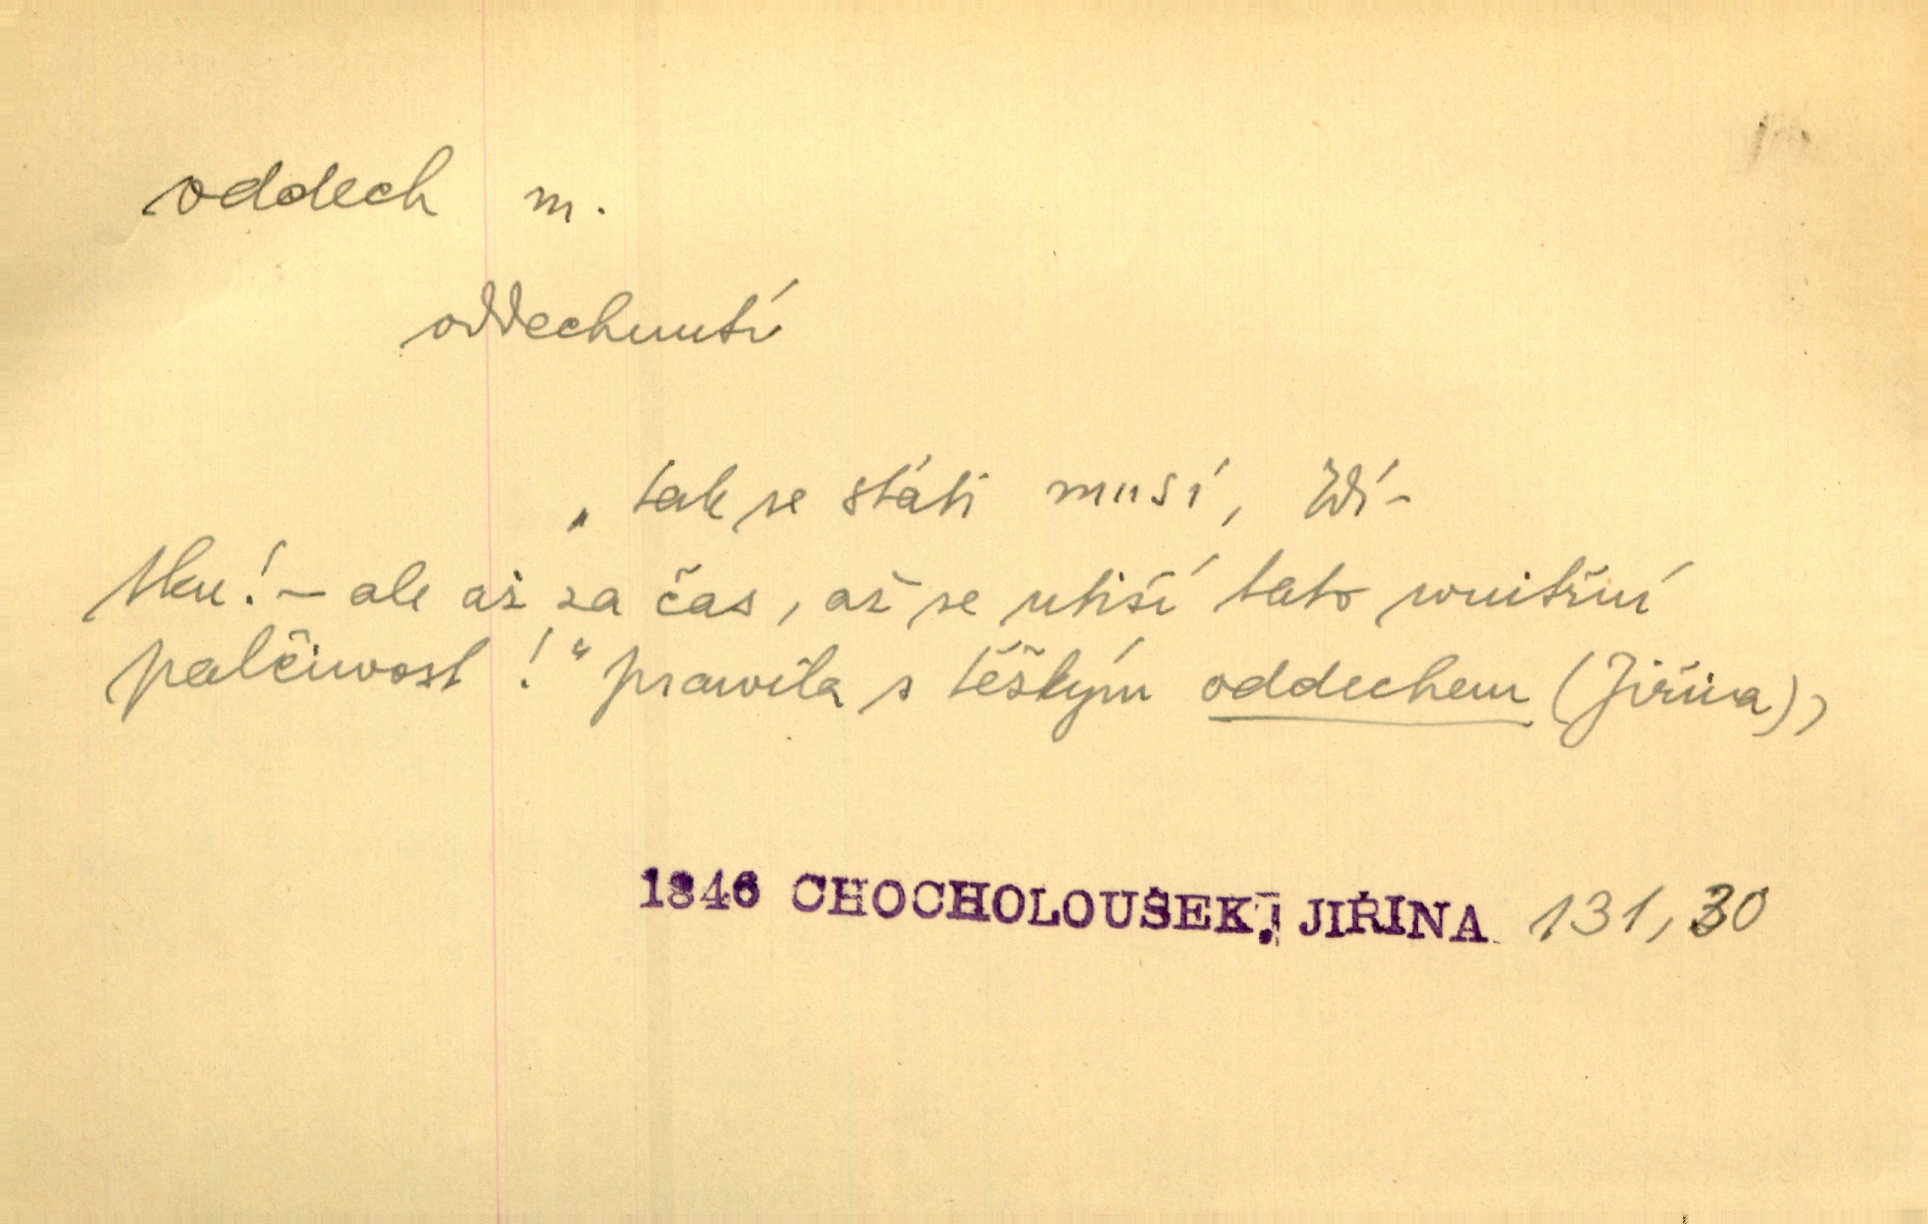 oddech m.
oddechnutí
„tak se státi musí, Wí-
tku! – ale až za čas, až se utiší tato wnitřní
palčiwost!“ prawila s těžkým oddechem (Jiřina),
1846 CHOCHOLOUŠEK, JIŘINA 131, 30